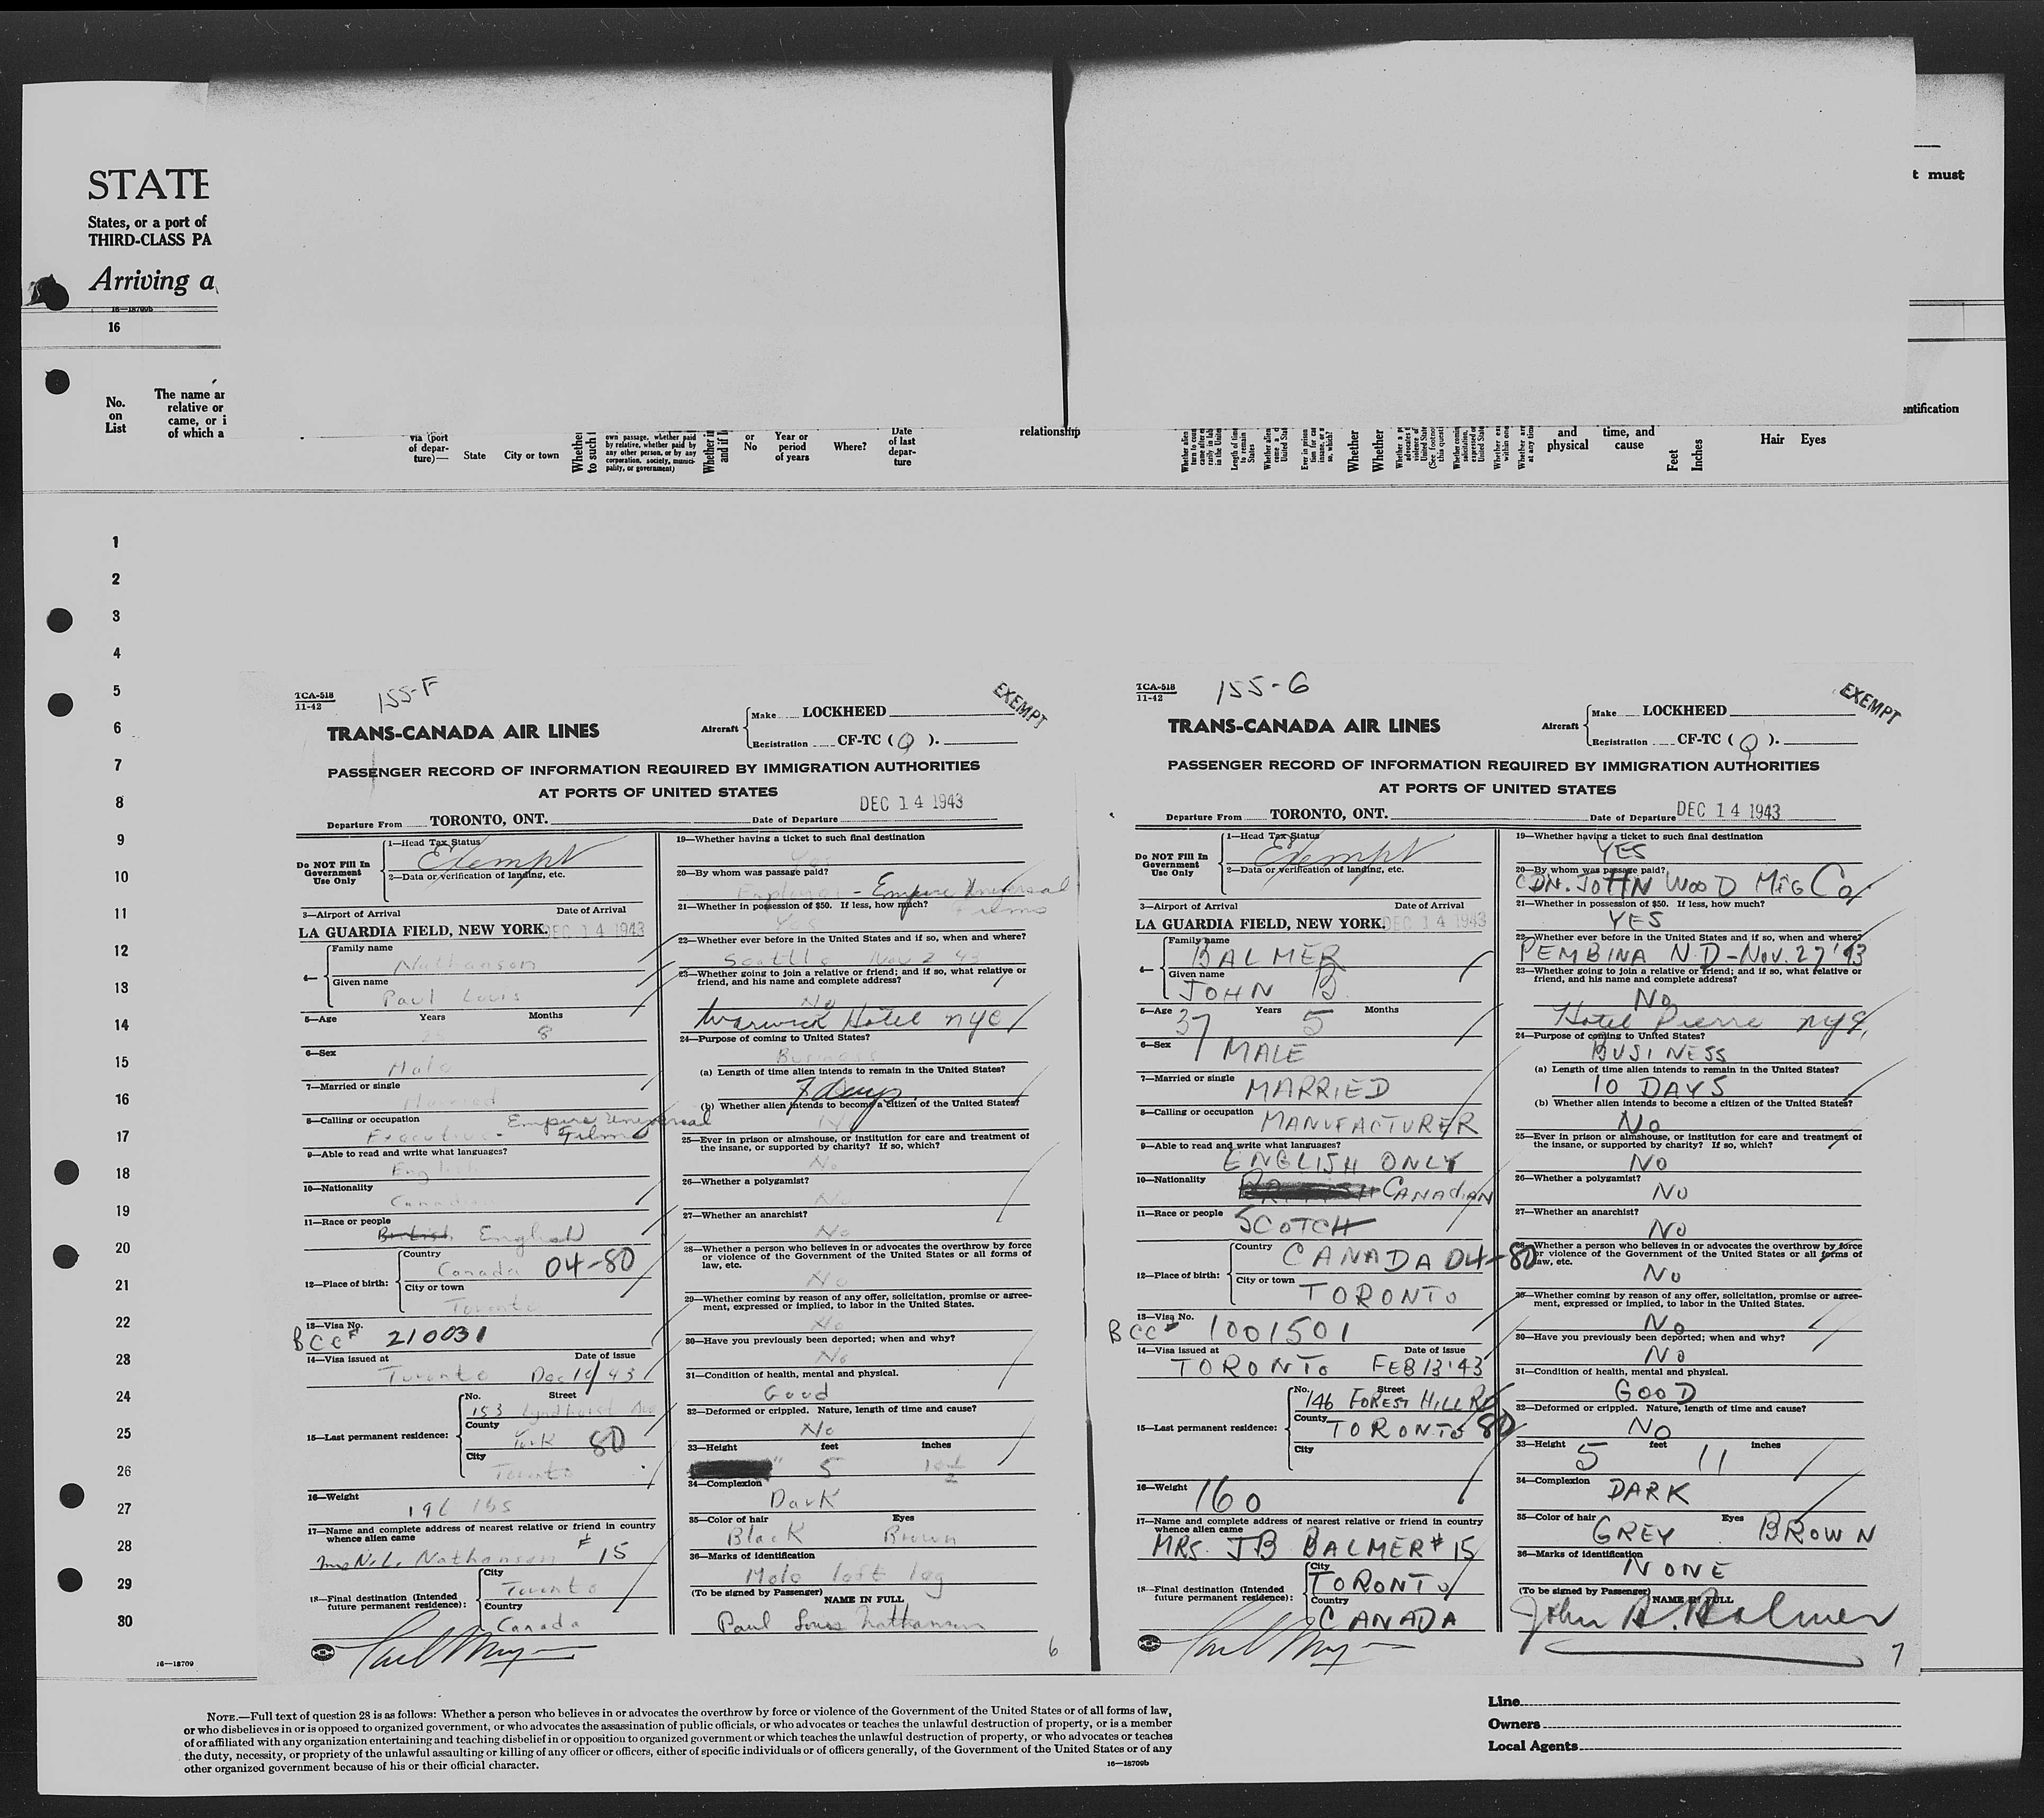 STATE
States, or a port of
THIRD-CLASS PA
Arriving a
16—18709b
16
t must
No.
on
List
The name ar
relative or
came, or i
of which a
via (port
of depar-
ture)—
State
City or town
Whethe
to such
own passage, whether paid
by relative, whether paid by
any other person, or by any
corporation, society, munici-
pality, or government)
Whether i
and if
or
No
Year or
period
of years
Where?
Date
of last
depar-
ture
relationship
Whether
Whether
and
physical
time, and
cause
Feet
Inches
Hair
Eyes
entification
1
2
3
4
5
6
7
8
9
10
11
12
13
14
15
16
17
18
19
20
21
22
23
24
25
26
27
28
29
30
16—18709
TCA-518
11-42
155-F
EXEMPT
TRANS-CANADA AIR LINES
Aircraft
Make LOCKHEED
Registration CF-TC (Q).
PASSENGER RECORD OF INFORMATION REQUIRED BY IMMIGRATION AUTHORITIES
AT PORTS OF UNITED STATES
DEC 14 1943
Departure From TORONTO, ONT. Date of Departure
Do NOT Fill In
Government
Use Only
1—Head Tax Status
Exempt
2—Data or verification of landing, etc.
3—Airport of Arrival Date of Arrival
LA GUARDIA FIELD, NEW YORK. DEC 14 1943
4—
Family name
Nathanson
Given name
Paul Louis
5—Age Years Months
8
6—Sex
Male
7—Married or single
Married
8—Calling or occupation
Executive - Empire Universal
Films
9—Able to read and write what languages?
English
10—Nationality
Canadian
11—Race or people
British English
12—Place of birth:
Country
Canada 04-80
City or town
Toronto
13—Visa No.
BCC# 210031
14—Visa issued at Date of issue
Toronto Dec 10/43
15—Last permanent residence:
No. Street
153 Lyndhurst Ave
County
York 80
City
Toronto
16—Weight
196 lbs
17—Name and complete address of nearest relative or friend in country
whence alien came
Mrs N. L. Nathanson #15
18—Final destination (Intended
future permanent residence):
City
Toronto
Country
Canada
19—Whether having a ticket to such final destination
Yes
20—By whom was passage paid?
Employer - Empire Universal
Films
21—Whether in possession of $50. If less, how much?
Yes
22—Whether ever before in the United States and if so, when and where?
Seattle Nov 2 43
23—Whether going to join a relative or friend; and if so, what relative or
friend, and his name and complete address?
No
Warwick Hotel NYC
24—Purpose of coming to United States?
Business
(a) Length of time alien intends to remain in the United States?
7 Days.
(b) Whether alien intends to become a citizen of the United States?
No
25—Ever in prison or almshouse, or institution for care and treatment of
the insane, or supported by charity? If so, which?
No
26—Whether a polygamist?
No
27—Whether an anarchist?
No
28—Whether a person who believes in or advocates the overthrow by force
or violence of the Government of the United States or all forms of
law, etc.
No
29—Whether coming by reason of any offer, solicitation, promise or agree-
ment, expressed or implied, to labor in the United States.
No
30—Have you previously been deported; when and why?
No
31—Condition of health, mental and physical.
Good
32—Deformed or crippled. Nature, length of time and cause?
No
33—Height feet inches
5 10½
34—Complexion
Dark
35—Color of hair Eyes
Black Brown
36—Marks of identification
Mole left leg
(To be signed by Passenger)
NAME IN FULL
Paul Louis Nathanson
6
TCA-518
11-42
155-G
EXEMPT
TRANS-CANADA AIR LINES
Aircraft
Make LOCKHEED
Registration CF-TC (Q).
PASSENGER RECORD OF INFORMATION REQUIRED BY IMMIGRATION AUTHORITIES
AT PORTS OF UNITED STATES
Departure From TORONTO, ONT. Date of Departure DEC 14 1943
Do NOT Fill In
Government
Use Only
1—Head Tax Status
Exempt
2—Data or verification of landing, etc.
3—Airport of Arrival Date of Arrival
LA GUARDIA FIELD, NEW YORK. DEC 14 1943
4—
Family name
BALMER
Given name
JOHN B
5—Age Years Months
37 5
6—Sex
MALE
7—Married or single
MARRIED
8—Calling or occupation
MANUFACTURER
9—Able to read and write what languages?
ENGLISH ONLY
10—Nationality
CANADIAN
11—Race or people
SCOTCH
12—Place of birth:
Country
CANADA 04-80
City or town
TORONTO
13—Visa No.
BCC# 1001501
14—Visa issued at Date of issue
TORONTO FEB 13 '43
15—Last permanent residence:
No. Street
146 FOREST HILL RD
County
TORONTO 80
City
16—Weight
160
17—Name and complete address of nearest relative or friend in country
whence alien came
MRS. JB BALMER #15
18—Final destination (Intended
future permanent residence):
City
TORONTO
Country
CANADA
19—Whether having a ticket to such final destination
YES
20—By whom was passage paid?
CDN. JOHN WOOD MFG CO.
21—Whether in possession of $50. If less, how much?
YES
22—Whether ever before in the United States and if so, when and where?
PEMBINA N.D - NOV. 27 '43
23—Whether going to join a relative or friend; and if so, what relative or
friend, and his name and complete address?
No
Hotel Pierre NYC
24—Purpose of coming to United States?
BUSINESS
(a) Length of time alien intends to remain in the United States?
10 DAYS
(b) Whether alien intends to become a citizen of the United States?
No
25—Ever in prison or almshouse, or institution for care and treatment of
the insane, or supported by charity? If so, which?
No
26—Whether a polygamist?
No
27—Whether an anarchist?
No
28—Whether a person who believes in or advocates the overthrow by force
or violence of the Government of the United States or all forms of
law, etc.
No
29—Whether coming by reason of any offer, solicitation, promise or agree-
ment, expressed or implied, to labor in the United States.
No
30—Have you previously been deported; when and why?
No
31—Condition of health, mental and physical.
GOOD
32—Deformed or crippled. Nature, length of time and cause?
No
33—Height feet inches
5 11
34—Complexion
DARK
35—Color of hair Eyes
GREY BROWN
36—Marks of identification
NONE
(To be signed by Passenger)
NAME IN FULL
John B. Balmer
7
NOTE.—Full text of question 28 is as follows: Whether a person who believes in or advocates the overthrow by force or violence of the Government of the United States or of all forms of law,
or who disbelieves in or is opposed to organized government, or who advocates the assassination of public officials, or who advocates or teaches the unlawful destruction of property, or is a member
of or affiliated with any organization entertaining and teaching disbelief in or opposition to organized government or which teaches the unlawful destruction of property, or who advocates or teaches
the duty, necessity, or propriety of the unlawful assaulting or killing of any officer or officers, either of specific individuals or of officers generally, of the Government of the United States or of any
other organized government because of his or their official character.
16—18709b
Line
Owners
Local Agents